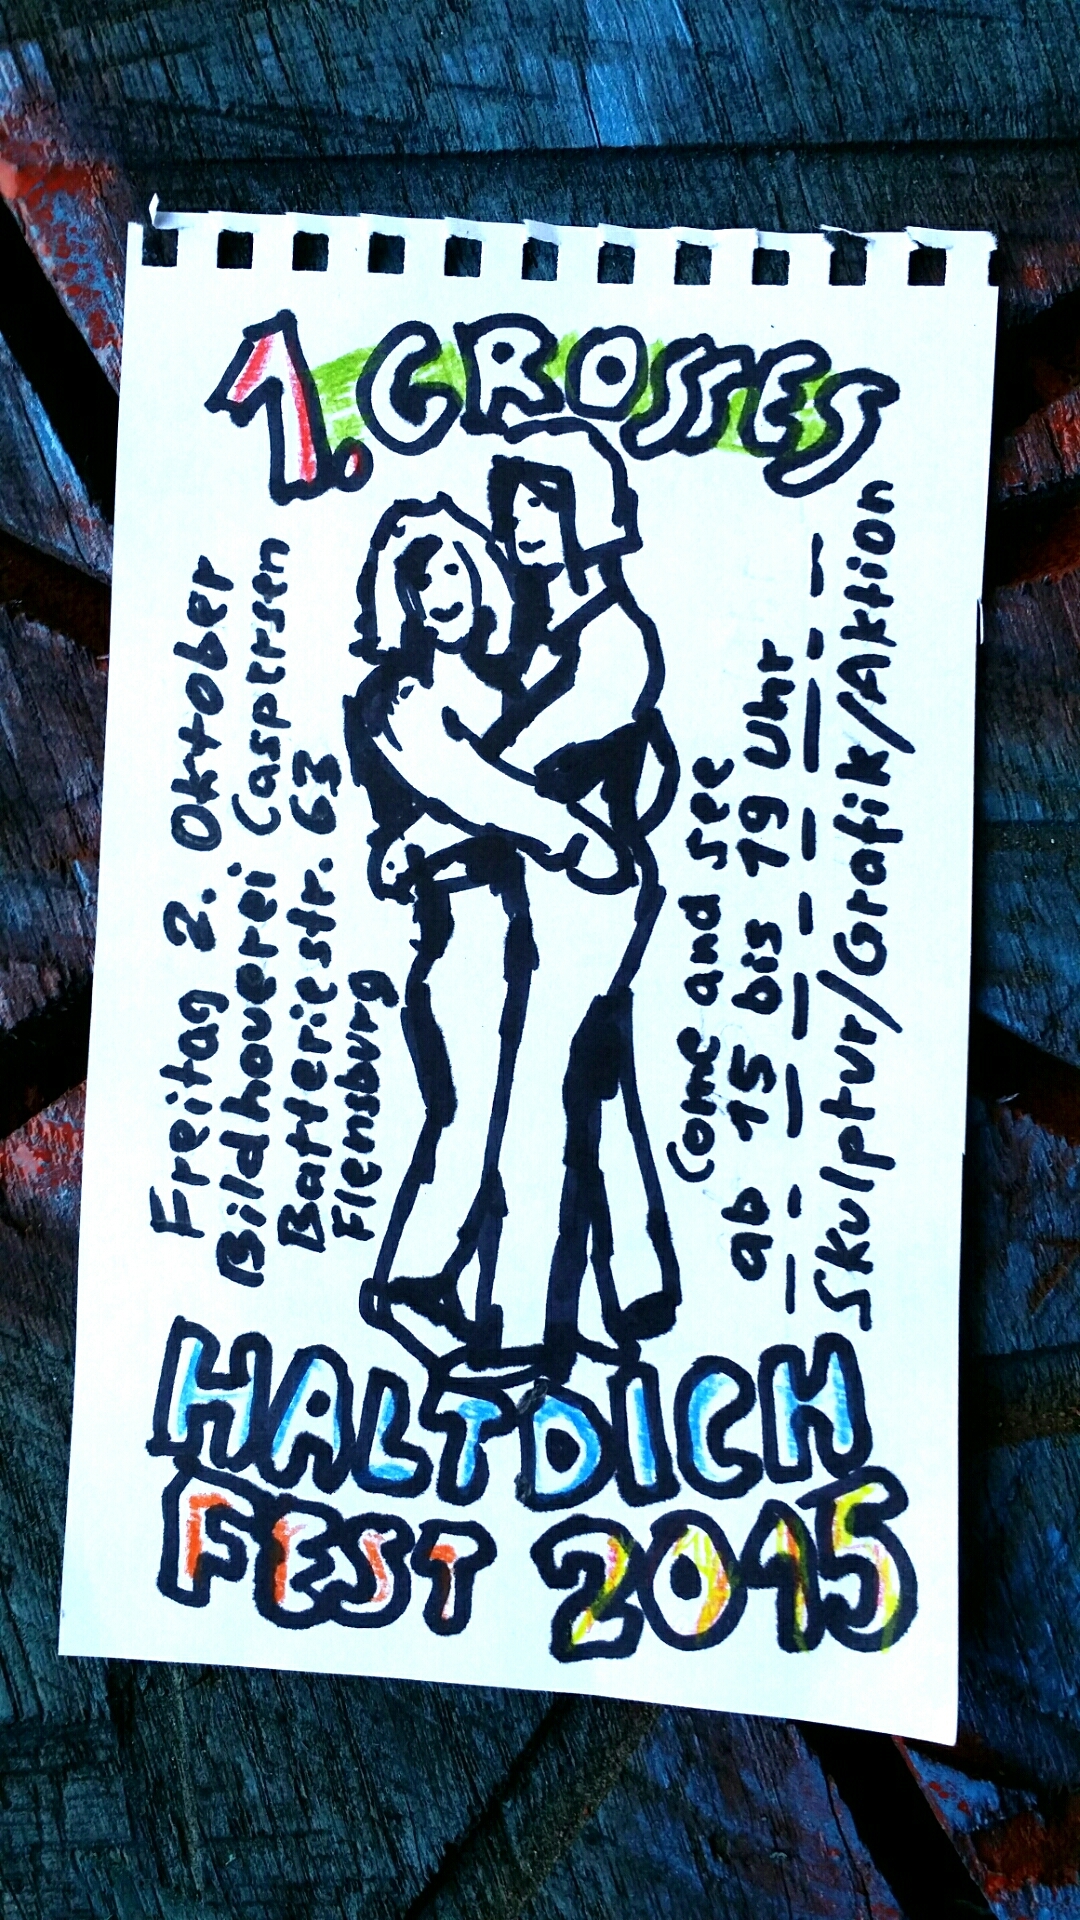 1. GROSSES
Freitag 2. Oktober
Bildhauerei Caspersen
Batteriestr. 63
Flensburg
Come and see
ab 15 bis 19 Uhr
Skulptur/Grafik/Aktion
HALTDICH
FEST 2015